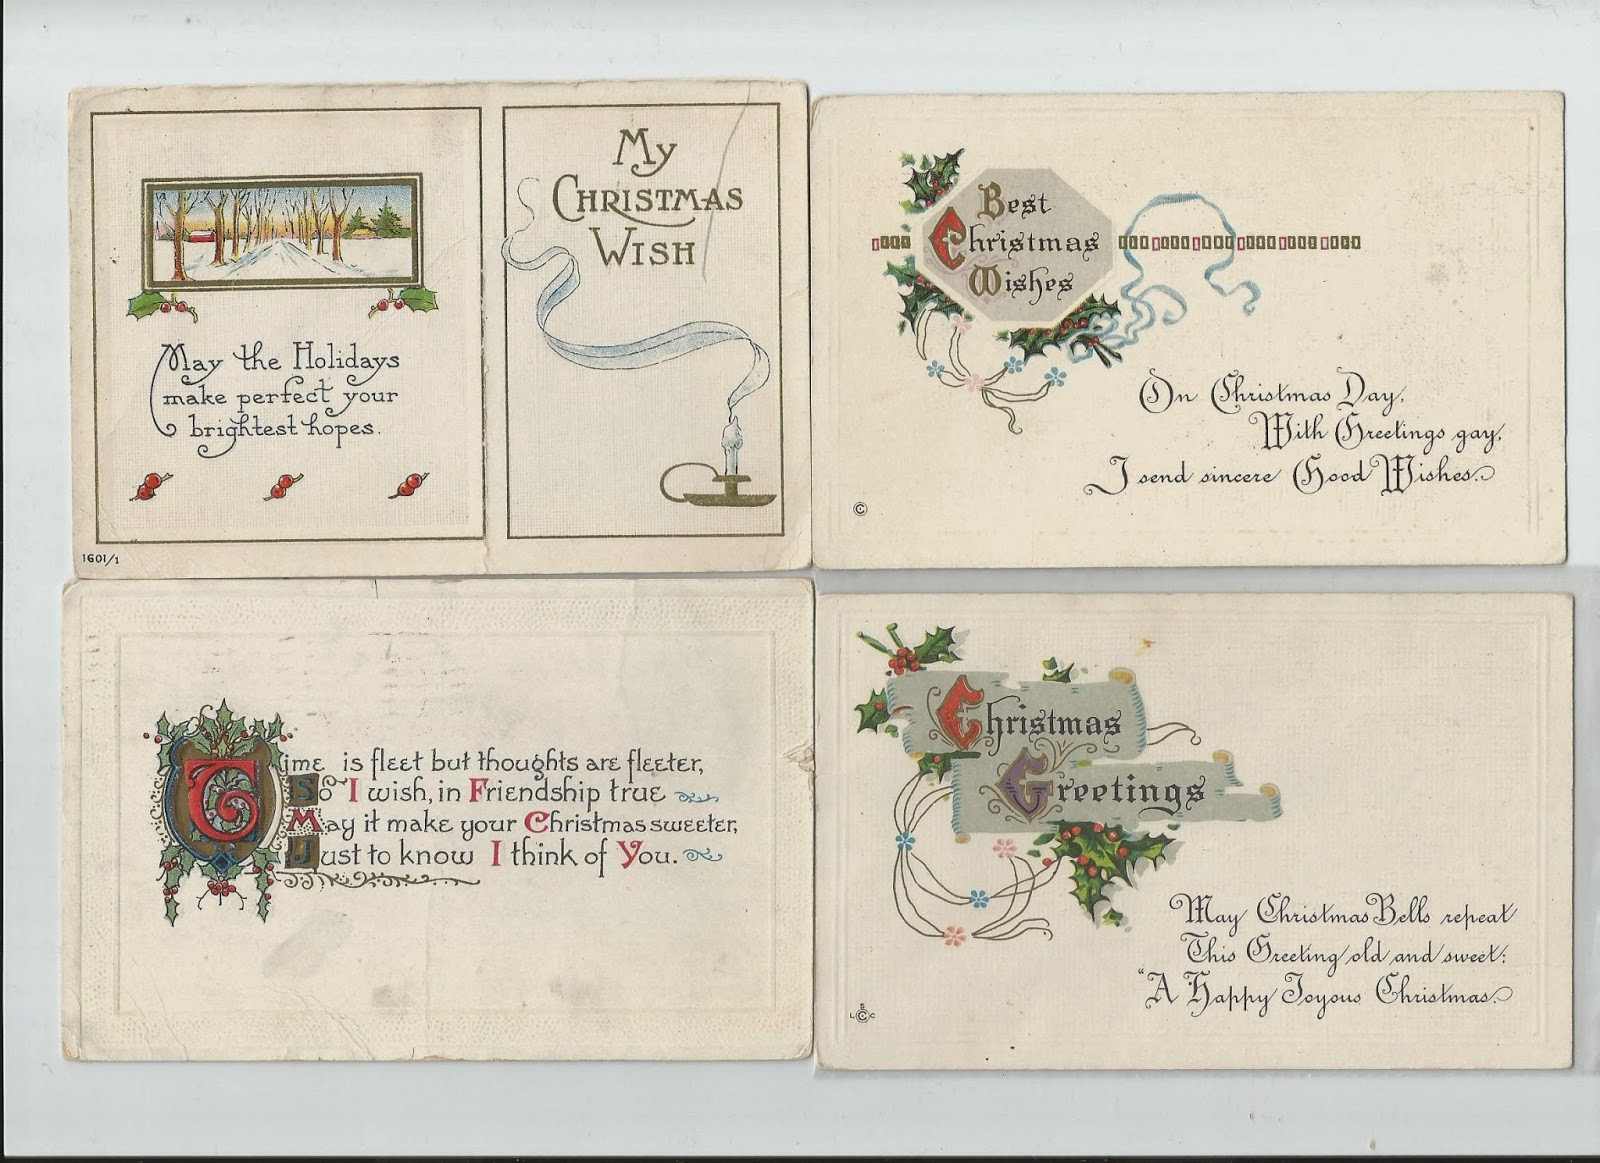 My
Christmas
Wish
May the Holidays
make perfect your
brightest hopes.
1601/1
Best
Christmas
Wishes
On Christmas Day,
With Greetings gay,
I send sincere Good Wishes.
©
Time is fleet but thoughts are fleeter,
So I wish, in Friendship true
May it make your Christmas sweeter,
Just to know I think of You.
Christmas
Greetings
May Christmas Bells repeat
This Greeting old and sweet:
"A Happy Joyous Christmas.
S
L © C